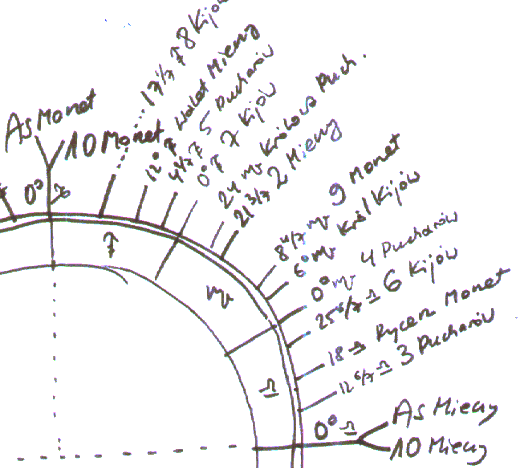 As Monet
10 Monet
0° ♑
17 1/7 ♐ 8 Kijów
12° ♐ Walet Mieczy
4 4/7 ♐ 5 Pucharów
0° ♐ 7 Kijów
24 ♏ Królowa Puch.
21 3/7 ♏ 2 Mieczy
8 4/7 ♏ 9 Monet
6° ♏ Król Kijów
0° ♏ 4 Pucharów
25 6/7 ♎ 6 Kijów
18 ♎ Rycerz Monet
12 6/7 ♎ 3 Pucharów
0° ♎
As Mieczy
10 Mieczy
♐
♏
♎